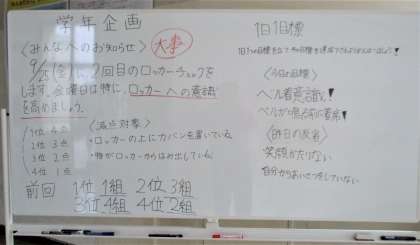 学年企画
〈みんなへのお知らせ〉 大事
9/25(金)に、2回目のロッカーチェックを
します。金曜日は特に、ロッカーへの意識
を高めましょう。
1位 4点
1位 3点
3位 2点
4位 1点
〈減点対象〉
・ロッカーの上にカバンを置いている
・物がロッカーからはみ出している
前回 1位 1組 2位 3組
3位 4組 4位 2組
1日1目標
1日1つの目標を立て、その目標を達成できるようがんばりましょう!
〈今日の目標〉
ベル着意識!
ベルが鳴る前に着席!
〈昨日の反省〉
笑顔が足りない
自分からあいさつをしていない